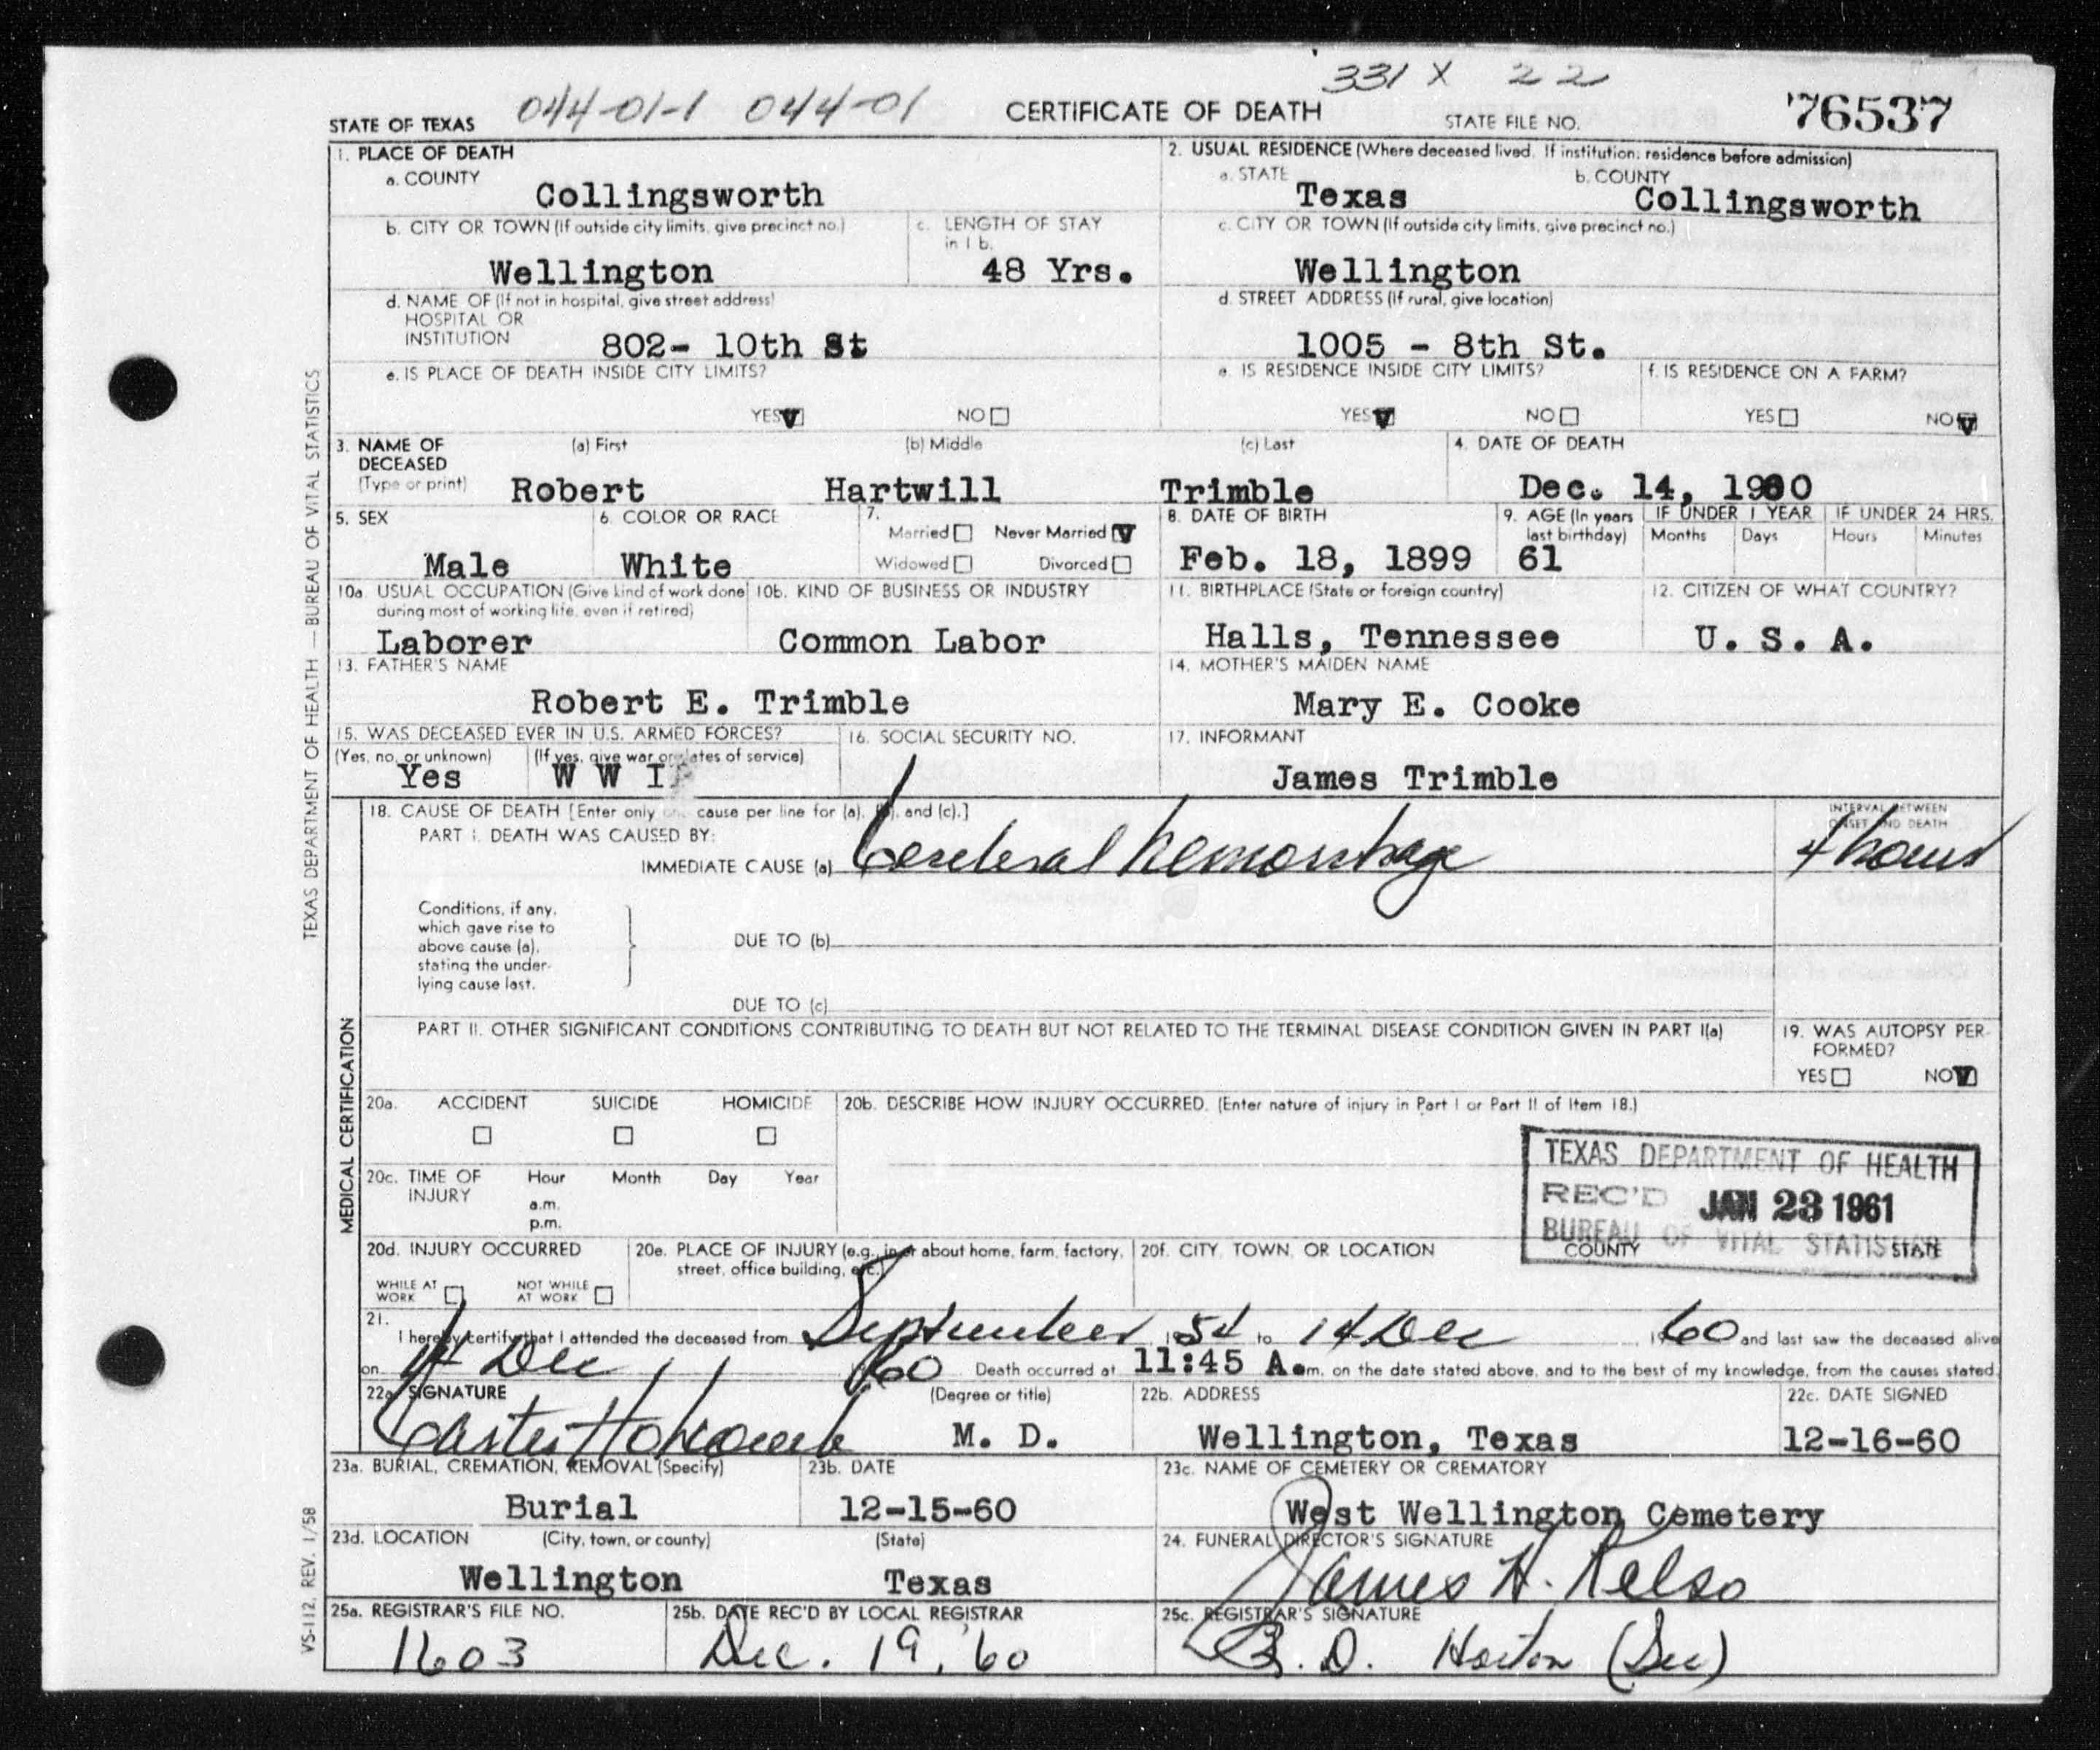 331 X 22
STATE OF TEXAS 044-01-1 044-01 CERTIFICATE OF DEATH STATE FILE NO. 76537
1. PLACE OF DEATH
a. COUNTY
Collingsworth
2. USUAL RESIDENCE (Where deceased lived. If institution: residence before admission)
a. STATE b. COUNTY
Texas Collingsworth
b. CITY OR TOWN (If outside city limits, give precinct no.)
Wellington
c. LENGTH OF STAY
in 1 b.
48 Yrs.
c. CITY OR TOWN (If outside city limits, give precinct no.)
Wellington
d. NAME OF (If not in hospital, give street address)
HOSPITAL OR
INSTITUTION 802- 10th St
d. STREET ADDRESS (If rural, give location)
1005 - 8th St.
e. IS PLACE OF DEATH INSIDE CITY LIMITS?
YES NO
e. IS RESIDENCE INSIDE CITY LIMITS?
YES NO
f. IS RESIDENCE ON A FARM?
YES NO
3. NAME OF
DECEASED
(Type or print)
(a) First (b) Middle (c) Last
Robert Hartwill Trimble
4. DATE OF DEATH
Dec. 14, 1960
5. SEX
Male
6. COLOR OR RACE
White
7.
Married Never Married
Widowed Divorced
8. DATE OF BIRTH
Feb. 18, 1899
9. AGE (In years
last birthday)
61
IF UNDER 1 YEAR
Months Days
IF UNDER 24 HRS.
Hours Minutes
10a. USUAL OCCUPATION (Give kind of work done
during most of working life, even if retired)
Laborer
10b. KIND OF BUSINESS OR INDUSTRY
Common Labor
11. BIRTHPLACE (State or foreign country)
Halls, Tennessee
12. CITIZEN OF WHAT COUNTRY?
U. S. A.
13. FATHER'S NAME
Robert E. Trimble
14. MOTHER'S MAIDEN NAME
Mary E. Cooke
15. WAS DECEASED EVER IN U.S. ARMED FORCES?
(Yes, no, or unknown) (If yes, give war or dates of service)
Yes W W I
16. SOCIAL SECURITY NO.
17. INFORMANT
James Trimble
18. CAUSE OF DEATH [Enter only one cause per line for (a), (b), and (c).]
PART I. DEATH WAS CAUSED BY:
IMMEDIATE CAUSE (a) Cerebral hemorrhage
INTERVAL BETWEEN
ONSET AND DEATH
4 hours
Conditions, if any,
which gave rise to
above cause (a),
stating the under-
lying cause last.
DUE TO (b)
DUE TO (c)
PART II. OTHER SIGNIFICANT CONDITIONS CONTRIBUTING TO DEATH BUT NOT RELATED TO THE TERMINAL DISEASE CONDITION GIVEN IN PART I(a)
19. WAS AUTOPSY PER-
FORMED?
YES NO
20a. ACCIDENT SUICIDE HOMICIDE
20b. DESCRIBE HOW INJURY OCCURRED. (Enter nature of injury in Part I or Part II of Item 18.)
20c. TIME OF
INJURY
Hour Month Day Year
a.m.
p.m.
TEXAS DEPARTMENT OF HEALTH
REC'D JAN 23 1961
BUREAU OF VITAL STATISTICS
20d. INJURY OCCURRED
WHILE AT
WORK
NOT WHILE
AT WORK
20e. PLACE OF INJURY (e.g., in or about home, farm, factory,
street, office building, etc.)
20f. CITY, TOWN, OR LOCATION COUNTY STATE
21.
I hereby certify that I attended the deceased from September 1954 to 14 Dec 1960 and last saw the deceased alive
on 14 Dec 1960 Death occurred at 11:45 A.m. on the date stated above, and to the best of my knowledge, from the causes stated.
22a. SIGNATURE (Degree or title)
Carter Holcomb M. D.
22b. ADDRESS
Wellington, Texas
22c. DATE SIGNED
12-16-60
23a. BURIAL, CREMATION, REMOVAL (Specify)
Burial
23b. DATE
12-15-60
23c. NAME OF CEMETERY OR CREMATORY
West Wellington Cemetery
23d. LOCATION (City, town, or county) (State)
Wellington Texas
24. FUNERAL DIRECTOR'S SIGNATURE
James H. Kelso
25a. REGISTRAR'S FILE NO.
1603
25b. DATE REC'D BY LOCAL REGISTRAR
Dec. 19, '60
25c. REGISTRAR'S SIGNATURE
D. Horton (Dec)
TEXAS DEPARTMENT OF HEALTH — BUREAU OF VITAL STATISTICS
MEDICAL CERTIFICATION
VS-112, REV. 1/58